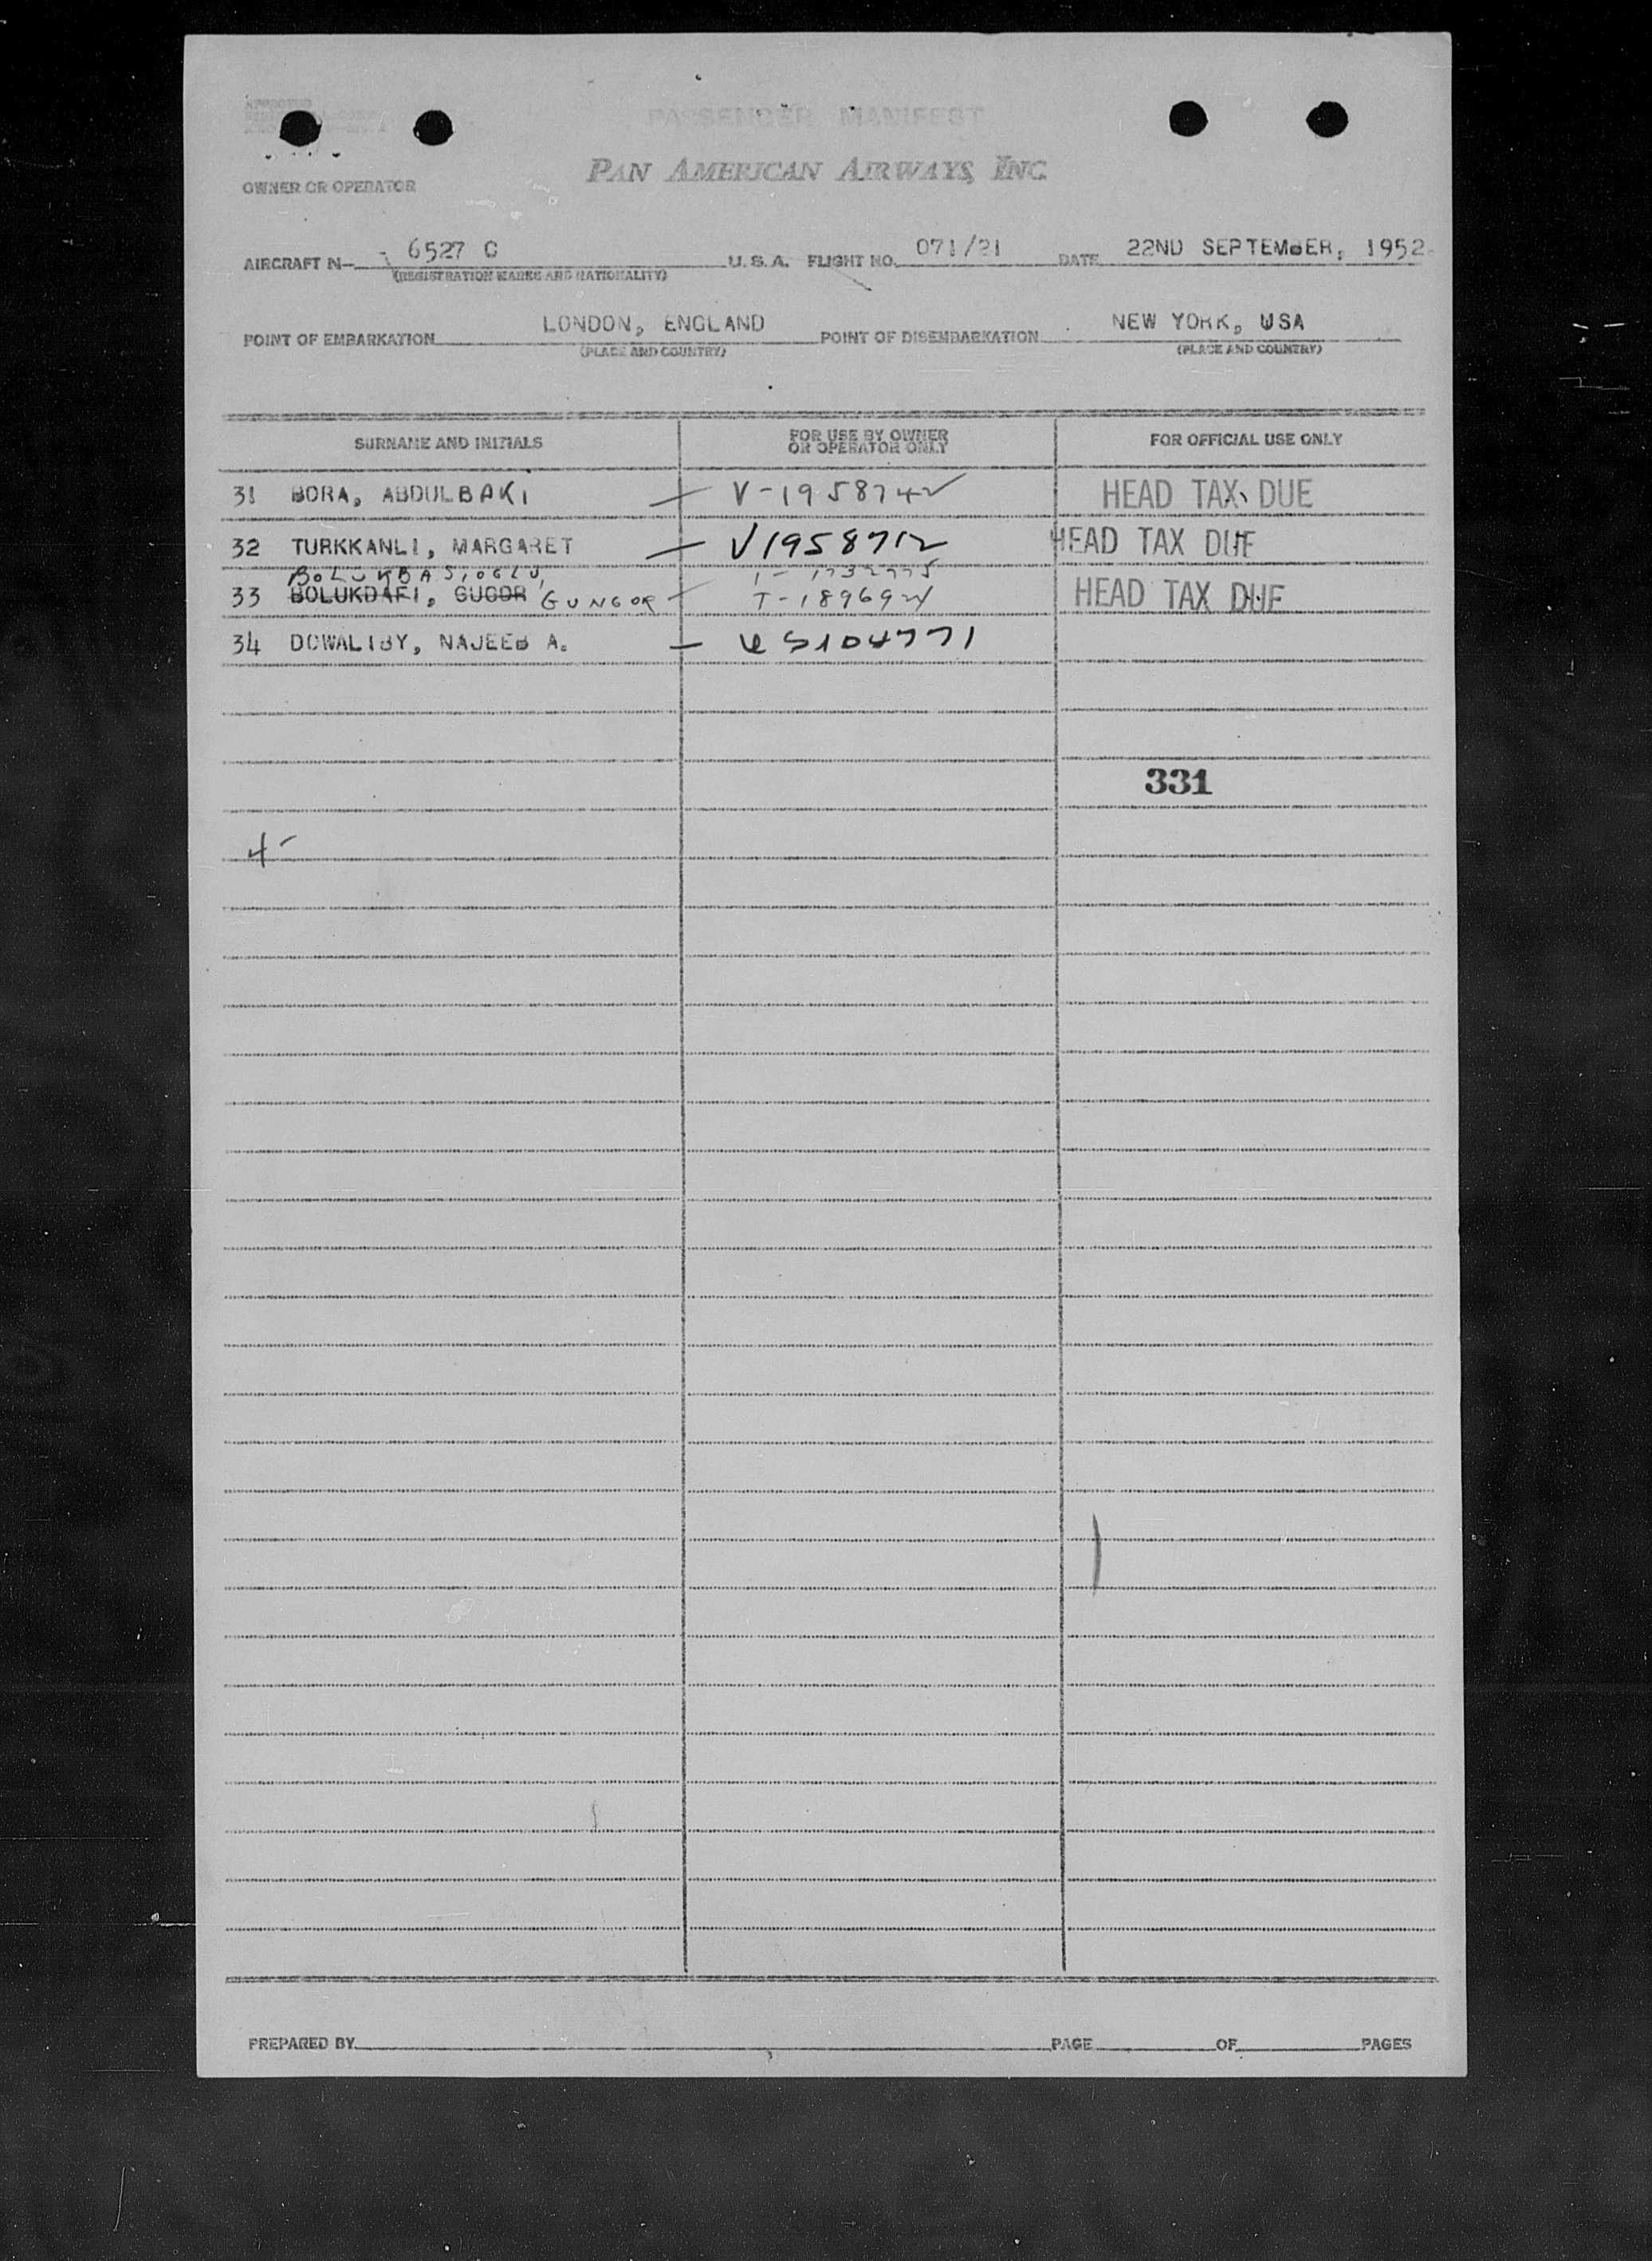 PASSENGER MANIFEST
PAN AMERICAN AIRWAYS, INC.
OWNER OR OPERATOR
AIRCRAFT N- 6527 C U.S.A. FLIGHT NO. 071/21 DATE 22ND SEPTEMBER, 1952
(REGISTRATION MARKS AND NATIONALITY)
POINT OF EMBARKATION LONDON, ENGLAND POINT OF DISEMBARKATION NEW YORK, USA
(PLACE AND COUNTRY) (PLACE AND COUNTRY)
SURNAME AND INITIALS FOR USE BY OWNER OR OPERATOR ONLY FOR OFFICIAL USE ONLY
31 BORA, ABDULBAKI — V-1958742 HEAD TAX DUE
32 TURKKANLI, MARGARET — V1958712 HEAD TAX DUE
BOLUKBASIOGLU,
33 BOLUKDAFI, GUGOR GUNGOR — T-1896924 HEAD TAX DUE
34 DOWALIBY, NAJEEB A. — 5104771
331
4-
PREPARED BY PAGE OF PAGES